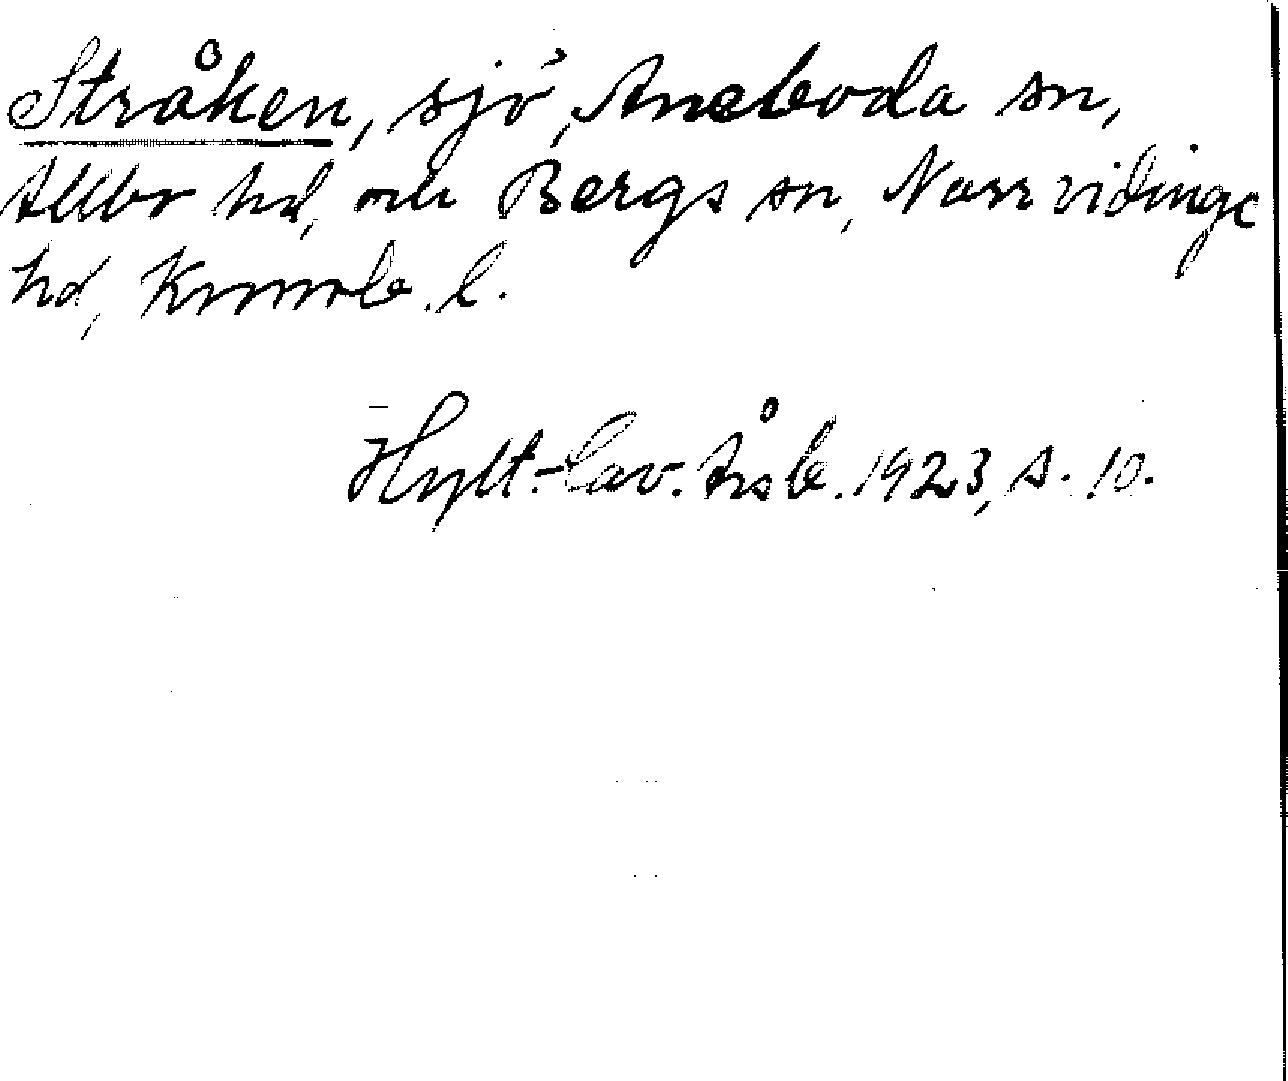 Stråken, sjö, Aneboda sn,
Allbo hd, och Bergs sn, Norrvidinge
hd, Kronob. l.
Hylt.-Cav. Årsb. 1923, s. 10.